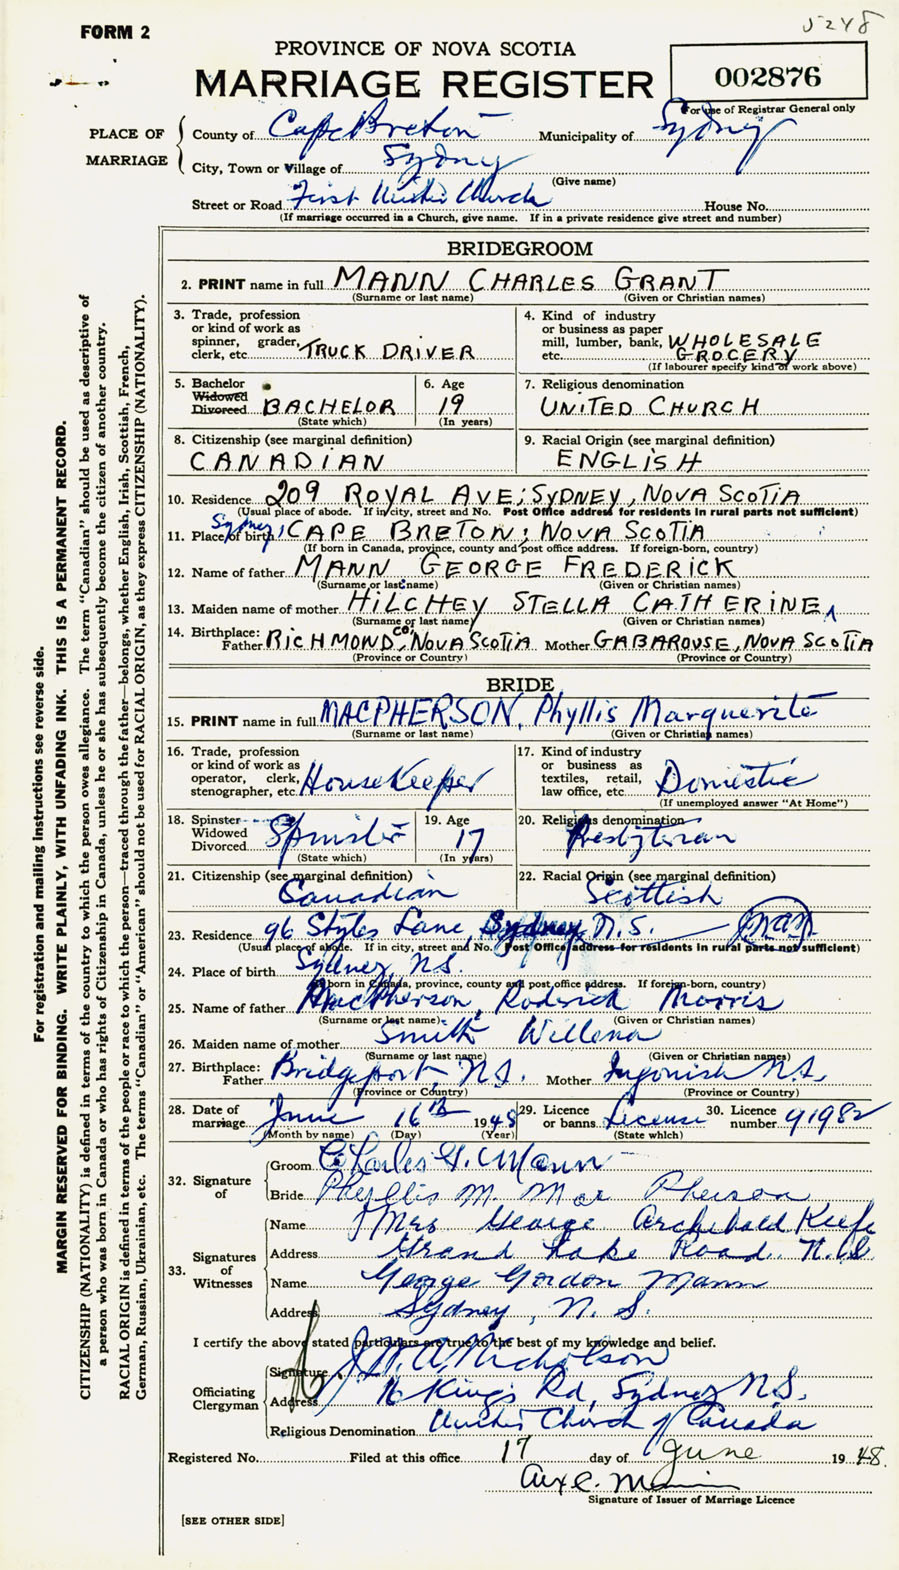 5248
FORM 2
PROVINCE OF NOVA SCOTIA
MARRIAGE REGISTER
002876
For use of Registrar General only
PLACE OF MARRIAGE
County of Cape Breton Municipality of Sydney
City, Town or Village of Sydney
(Give name)
Street or Road First United Church House No.
(If marriage occurred in a Church, give name. If in a private residence give street and number)
BRIDEGROOM
2. PRINT name in full MANN CHARLES GRANT
(Surname or last name) (Given or Christian names)
3. Trade, profession or kind of work as spinner, grader, clerk, etc. TRUCK DRIVER
4. Kind of industry or business as paper mill, lumber, bank, etc. WHOLESALE GROCERY
(If labourer specify kind of work above)
5. Bachelor Widowed Divorced BACHELOR
(State which)
6. Age 19
(In years)
7. Religious denomination
UNITED CHURCH
8. Citizenship (see marginal definition)
CANADIAN
9. Racial Origin (see marginal definition)
ENGLISH
10. Residence 209 ROYAL AVE; SYDNEY, NOVA SCOTIA
(Usual place of abode. If in city, street and No. Post Office address for residents in rural parts not sufficient)
11. Place of birth Sydney, CAPE BRETON; NOVA SCOTIA
(If born in Canada, province, county and post office address. If foreign-born, country)
12. Name of father MANN GEORGE FREDERICK
(Surname or last name) (Given or Christian names)
13. Maiden name of mother HILCHEY STELLA CATHERINE
(Surname or last name) (Given or Christian names)
14. Birthplace: Father RICHMOND CO, NOVA SCOTIA Mother GABAROUSE, NOVA SCOTIA
(Province or Country) (Province or Country)
BRIDE
15. PRINT name in full MACPHERSON, Phyllis Marguerite
(Surname or last name) (Given or Christian names)
16. Trade, profession or kind of work as operator, clerk, stenographer, etc. HouseKeeper
17. Kind of industry or business as textiles, retail, law office, etc. Domestic
(If unemployed answer "At Home")
18. Spinster Widowed Divorced Spinster
(State which)
19. Age 17
(In years)
20. Religious denomination
Presbyterian
21. Citizenship (see marginal definition)
Canadian
22. Racial Origin (see marginal definition)
Scottish
23. Residence 96 Styles Lane, Sydney N.S.
(Usual place of abode. If in city, street and No. Post Office address for residents in rural parts not sufficient)
24. Place of birth Sydney, N.S.
(If born in Canada, province, county and post office address. If foreign-born, country)
25. Name of father MacPherson, Roderick Morris
(Surname or last name) (Given or Christian names)
26. Maiden name of mother Smith Willena
(Surname or last name) (Given or Christian names)
27. Birthplace: Father Bridgeport, N.S. Mother Ingonish N.S.
(Province or Country) (Province or Country)
28. Date of marriage June 16th 1948
(Month by name) (Day) (Year)
29. Licence or banns License
(State which)
30. Licence number 91982
32. Signature of
Groom Charles G. Mann
Bride Phyllis M. MacPherson
33. Signatures of Witnesses
Name Mrs George Archibald Keefe
Address Grand Lake Road. N.S.
Name George Gordon Mann
Address Sydney, N. S.
I certify the above stated particulars are true to the best of my knowledge and belief.
Officiating Clergyman
Signature J.W.A. Nicholson
Address 16 Kings Rd, Sydney N.S.
Religious Denomination United Church of Canada
Registered No. Filed at this office 17 day of June 1948.
Signature of Issuer of Marriage Licence
[SEE OTHER SIDE]
For registration and mailing instructions see reverse side.
MARGIN RESERVED FOR BINDING. WRITE PLAINLY, WITH UNFADING INK. THIS IS A PERMANENT RECORD.
CITIZENSHIP (NATIONALITY) is defined in terms of the country to which the person owes allegiance. The term "Canadian" should be used as descriptive of
a person who was born in Canada or who has rights of Citizenship in Canada, unless he or she has subsequently become the citizen of another country.
RACIAL ORIGIN is defined in terms of the people or race to which the person—traced through the father—belongs, whether English, Irish, Scottish, French,
German, Russian, Ukrainian, etc. The terms "Canadian" or "American" should not be used for RACIAL ORIGIN, as they express CITIZENSHIP (NATIONALITY).